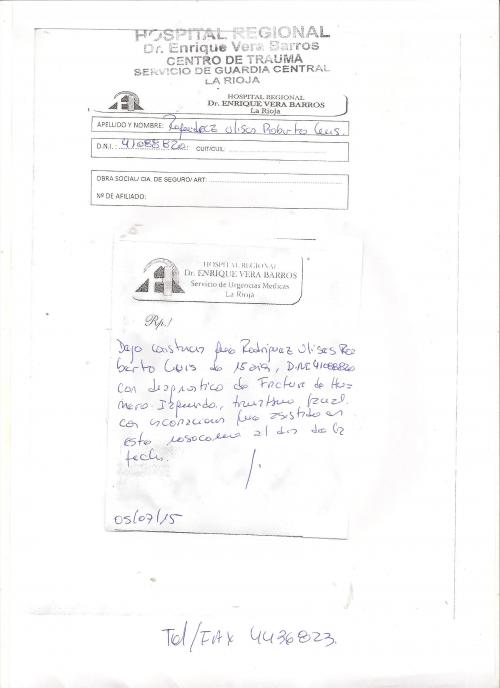 HOSPITAL REGIONAL
Dr. Enrique Vera Barros
CENTRO DE TRAUMA
SERVICIO DE GUARDIA CENTRAL
LA RIOJA
HOSPITAL REGIONAL
Dr. ENRIQUE VERA BARROS
La Rioja
APELLIDO Y NOMBRE: Rodriguez Ulises Roberto Luis.
D.N.I.: 41088820 CUIT/CUIL:
OBRA SOCIAL/ CIA. DE SEGURO/ ART:
Nº DE AFILIADO:
HOSPITAL REGIONAL
Dr. ENRIQUE VERA BARROS
Servicio de Urgencias Medicas
La Rioja
Rp./
Dejo constancia que Rodriguez Ulises Ro
berto Luis de 15 años, DNI 41088820
con diagnostico de Fractura de Hu
mero Izquierdo,
con que asistido en
este nosocomio el dia de la
fecha.
05/07/15
Tel/FAX 4436823.